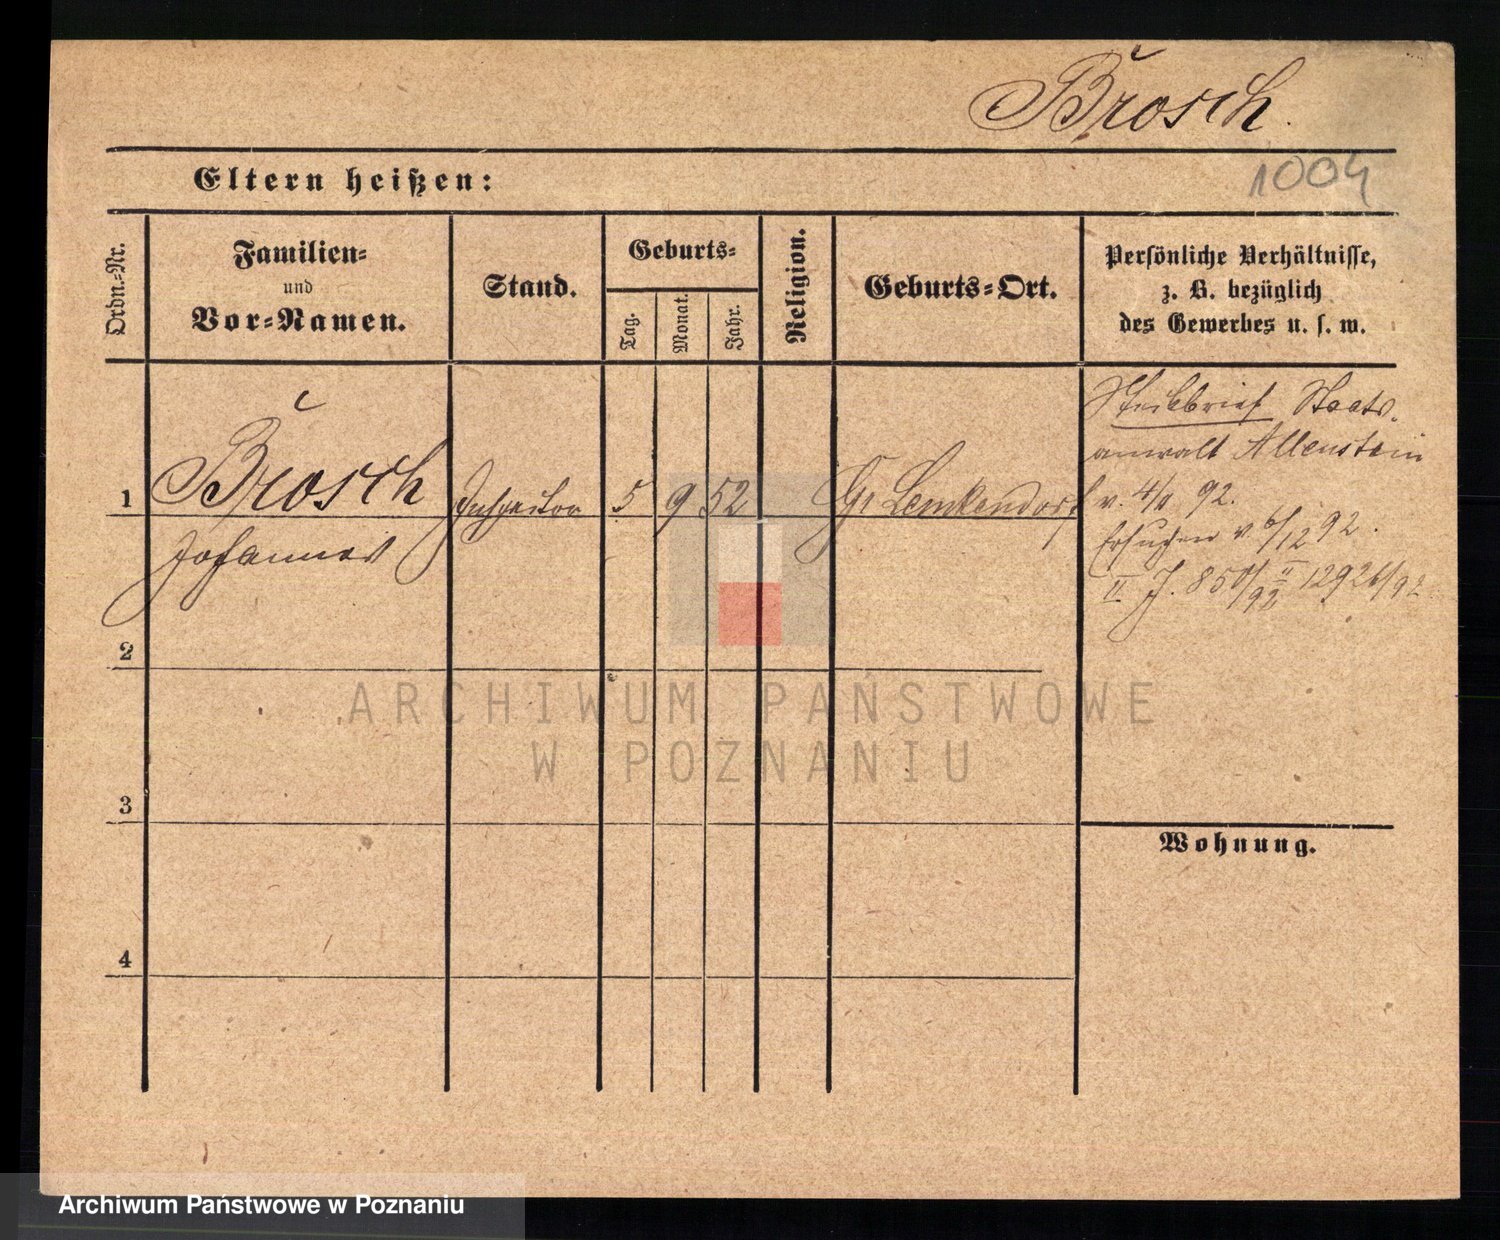 Brosch.
1004
Eltern heißen:
Ordn.=Nr.
Familien=
und
Vor=Namen.
Stand.
Geburts=
Tag.
Monat.
Jahr.
Religion.
Geburts=Ort.
Persönliche Verhältnisse,
z. B. bezüglich
des Gewerbes u. s. w.
1
Brosch
Johannes
Inspektor
5
9
52
Gr Lemkendorf
Steckbrief Staats
anwalt Allenstein
v. 4/11 92.
Ersuchen v. 6/12 92.
II J. 850/92 12926/92
2
3
4
Wohnung.
ARCHIWUM PAŃSTWOWE
W POZNANIU
Archiwum Państwowe w Poznaniu